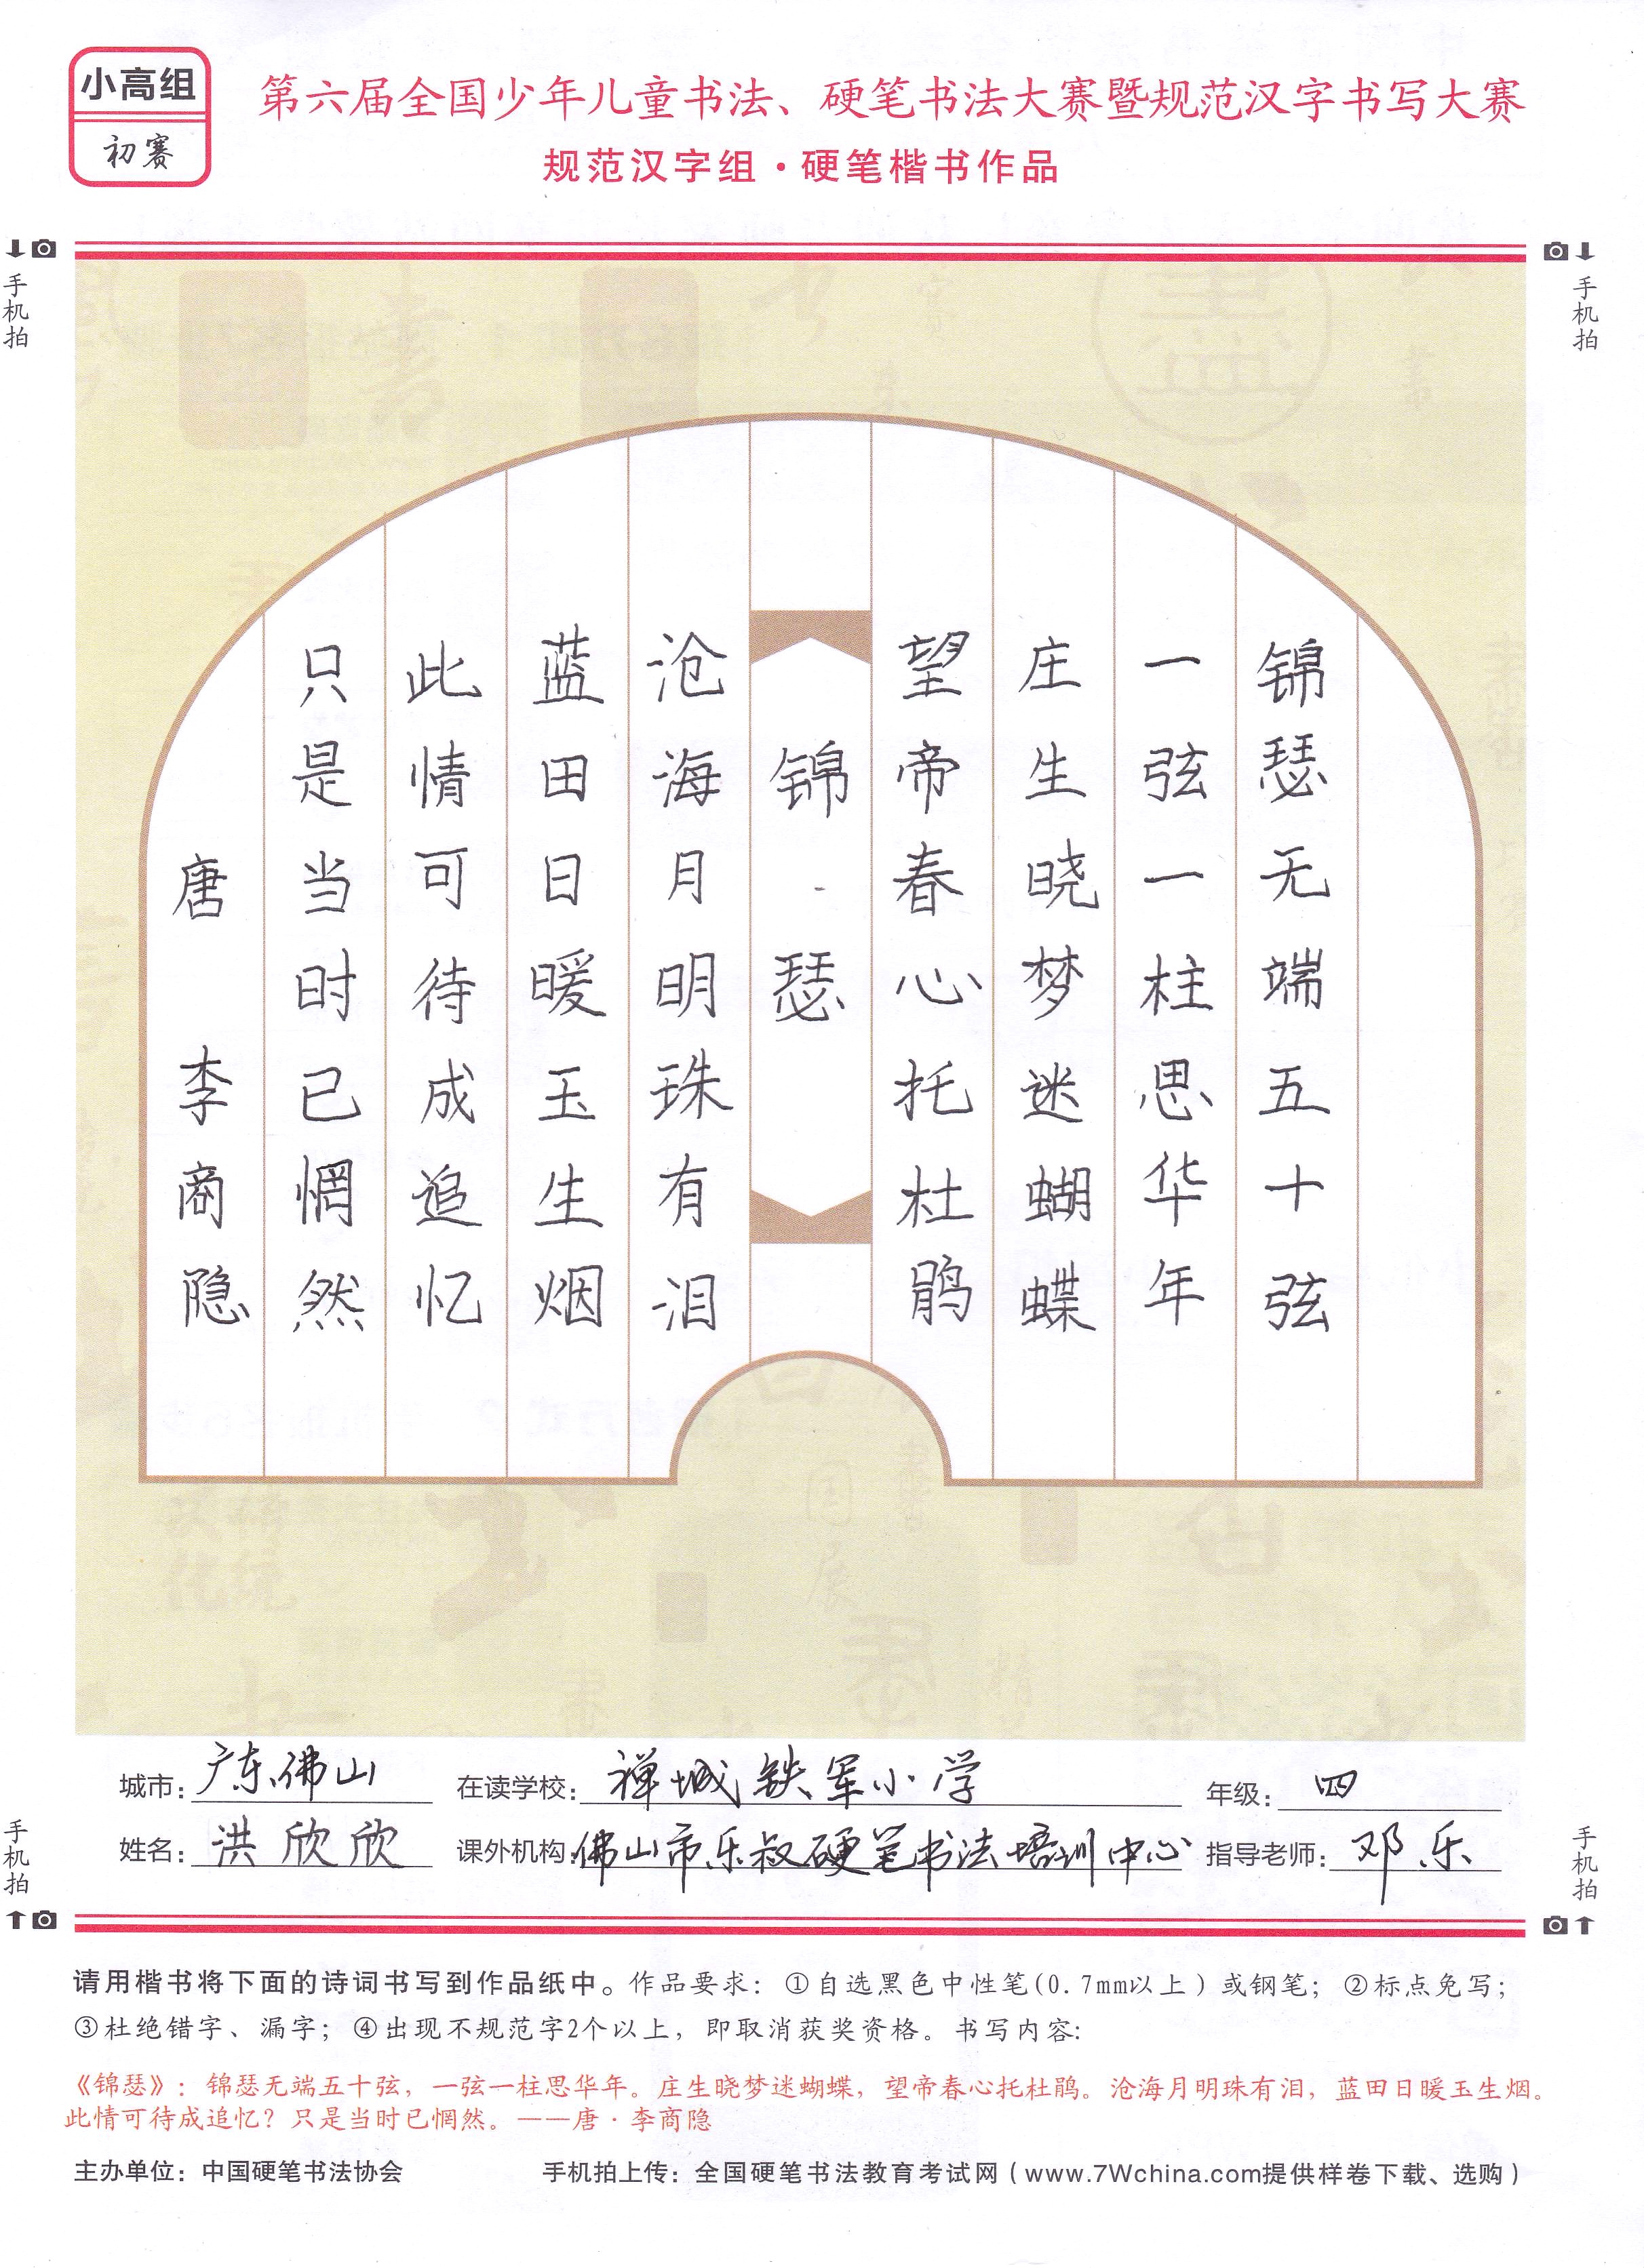 小高组
初赛
第六届全国少年儿童书法、硬笔书法大赛暨规范汉字书写大赛
规范汉字组·硬笔楷书作品
手机拍
手机拍
锦瑟无端五十弦
一弦一柱思华年
庄生晓梦迷蝴蝶
望帝春心托杜鹃
锦瑟
沧海月明珠有泪
蓝田日暖玉生烟
此情可待成追忆
只是当时已惘然
唐 李商隐
城市：广东佛山 在读学校：禅城铁军小学 年级：四
姓名：洪欣欣 课外机构：佛山市乐叔硬笔书法培训中心 指导老师：邓乐
手机拍
手机拍
请用楷书将下面的诗词书写到作品纸中。作品要求：①自选黑色中性笔(0.7mm以上)或钢笔；②标点免写；
③杜绝错字、漏字；④出现不规范字2个以上，即取消获奖资格。书写内容：
《锦瑟》：锦瑟无端五十弦，一弦一柱思华年。庄生晓梦迷蝴蝶，望帝春心托杜鹃。沧海月明珠有泪，蓝田日暖玉生烟。
此情可待成追忆？只是当时已惘然。——唐·李商隐
主办单位：中国硬笔书法协会 手机拍上传：全国硬笔书法教育考试网（www.7Wchina.com提供样卷下载、选购）